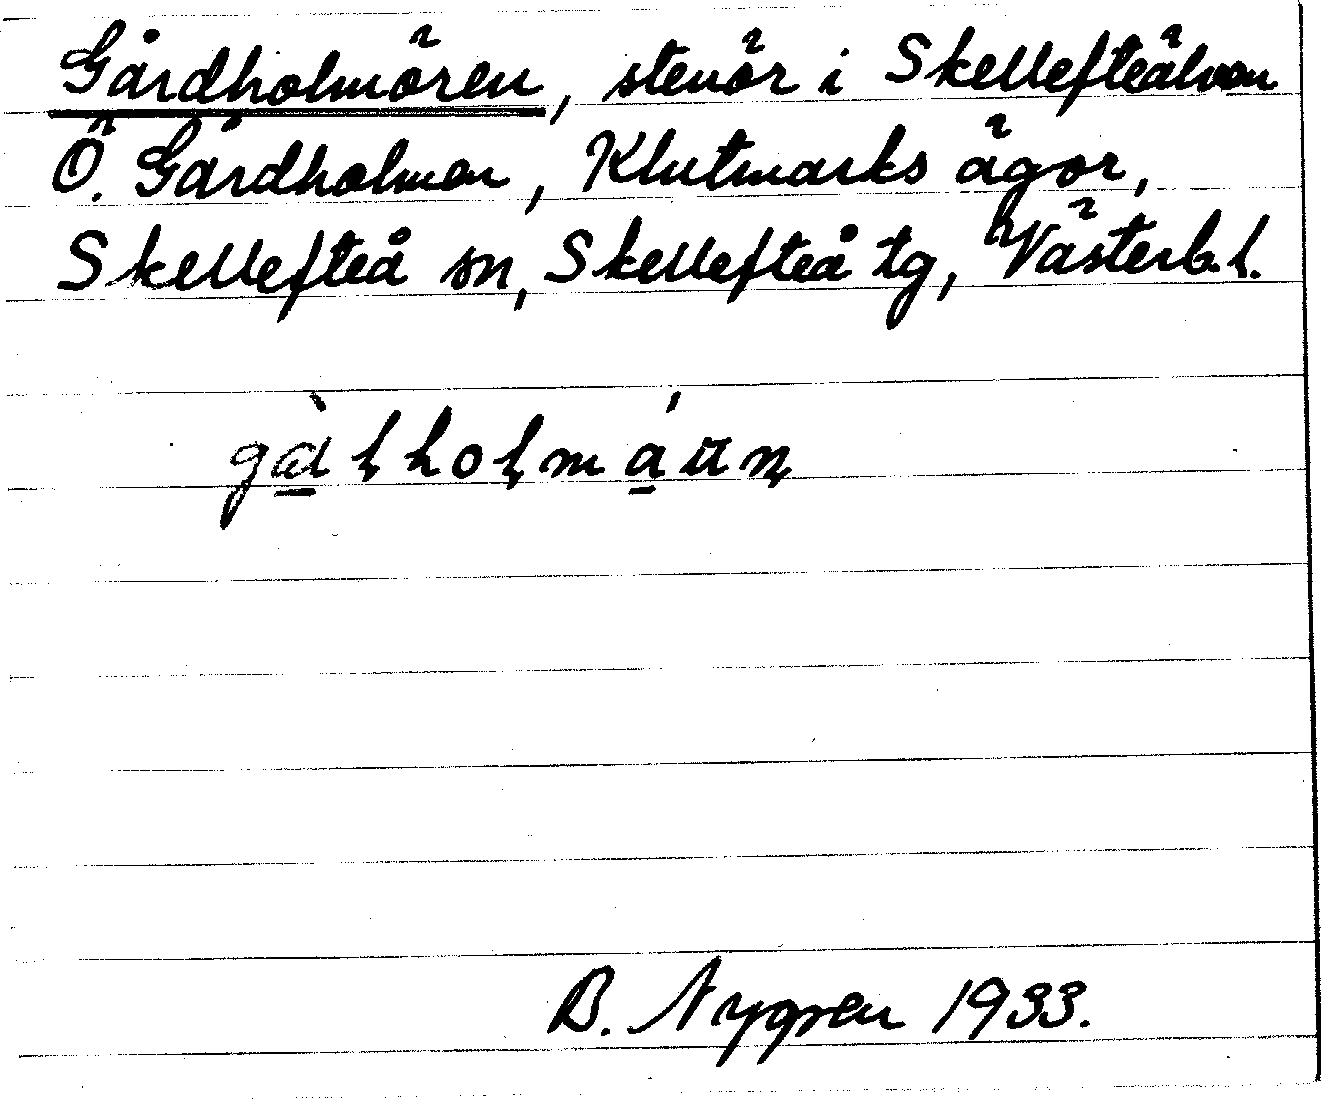 Gårdholmören, stenör i Skellefteälven
Ö. Gårdholmen, Klutmarks ägor,
Skellefteå sn, Skellefteå tg, Västerb. l.
B. Nygren 1933.